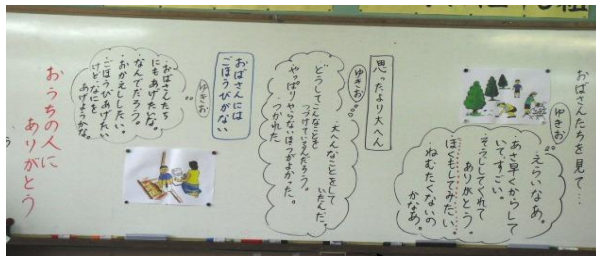 おばさんたちを見て…
ゆきお
えらいなあ。
あさ早くからして
いてすごい。
ありがとう。
そうしてくれて
ぼくもしてみたい。
ねむたくないの
かなあ。
思ったより大へん
ゆきお
大へんなことをして
いたんだ。
どうしてこんなことを
つづけているんだろう。
やっぱりやらないほうがよかった。
つかれた
おばさんには
ごほうびがない
ゆきお
おばさんたち
にもあげたいな。
なんでだろう。
おかえししたい。
ごほうびあげたい
けど、なにを
あげようかな。
おうちの人に
ありがとう